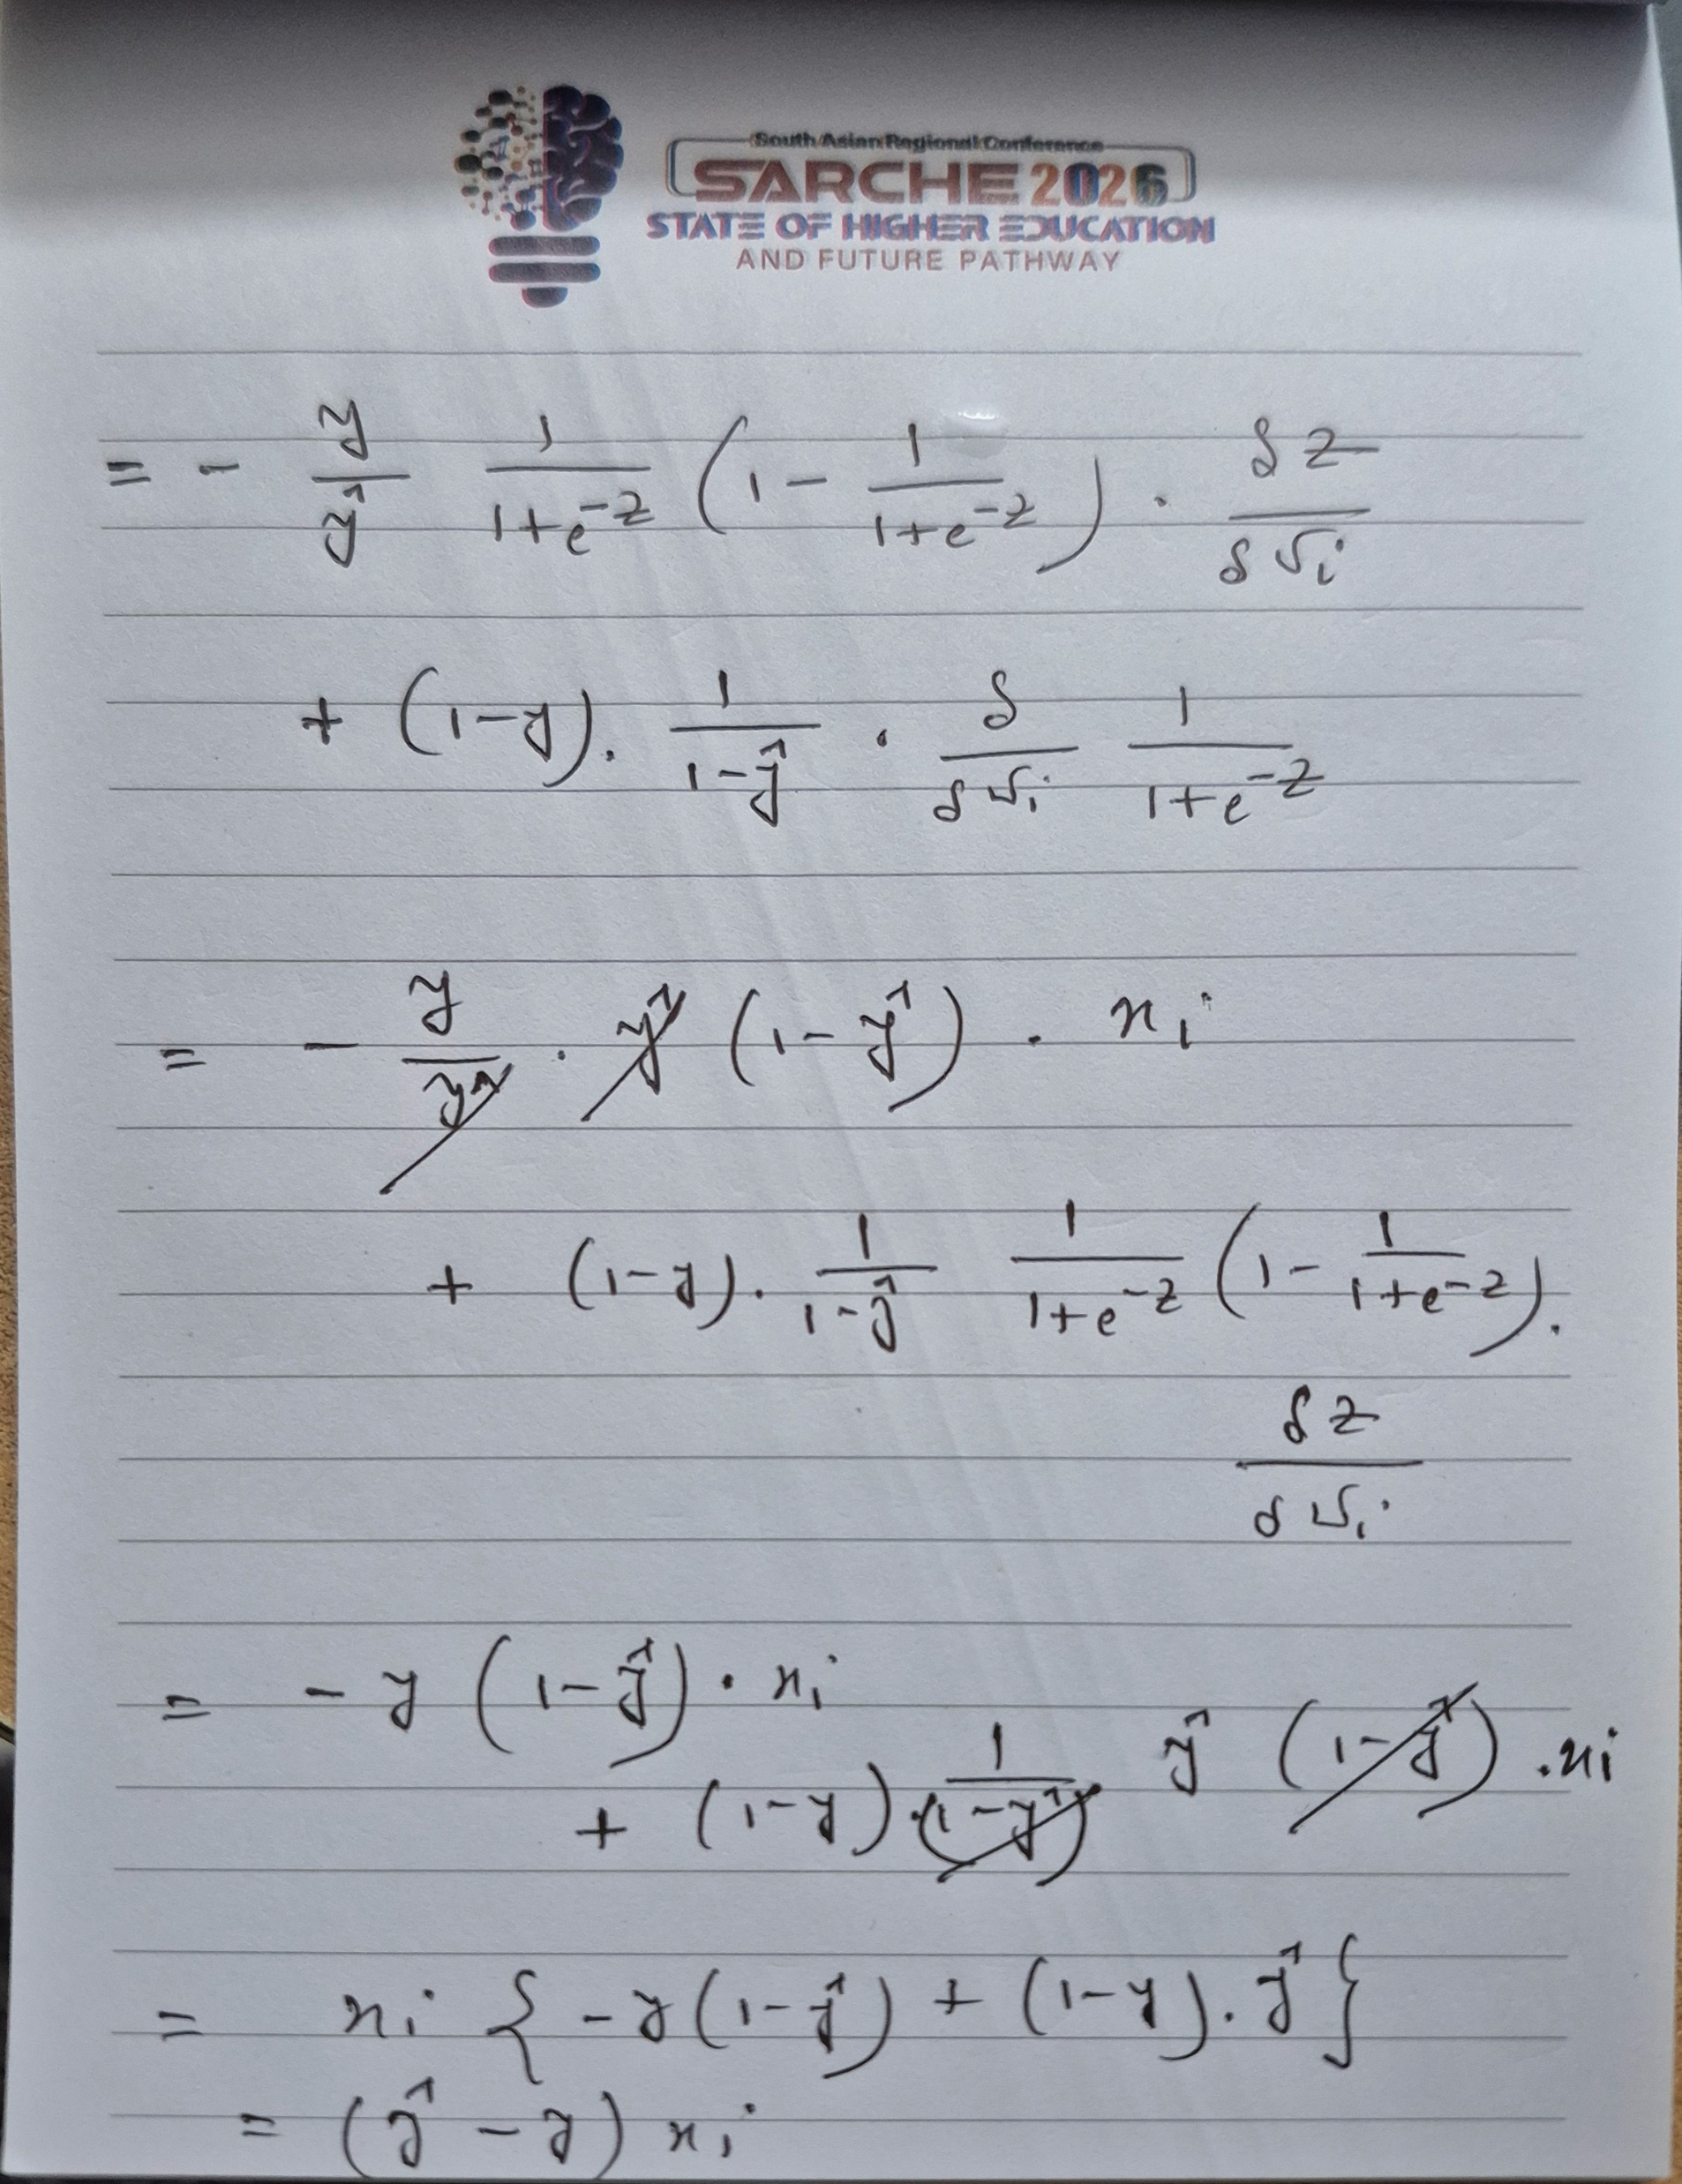 South Asian Regional Conference
SARCHE 2026
STATE OF HIGHER EDUCATION
AND FUTURE PATHWAY
= - \frac{y}{ŷ} \frac{1}{1+e^{-z}} (1 - \frac{1}{1+e^{-z}}) . \frac{δz}{δw_i}
+ (1-y). \frac{1}{1-ŷ} . \frac{δ}{δw_i} \frac{1}{1+e^{-z}}
= - \frac{y}{ŷ} . ŷ (1-ŷ) . x_i
+ (1-y). \frac{1}{1-ŷ} \frac{1}{1+e^{-z}} (1 - \frac{1}{1+e^{-z}}).
\frac{δz}{δw_i}
= - y (1-ŷ) . x_i
+ (1-y) . \frac{1}{(1-ŷ)} ŷ (1-ŷ) . x_i
= x_i { -y(1-ŷ) + (1-y). ŷ }
= (ŷ - y) x_i